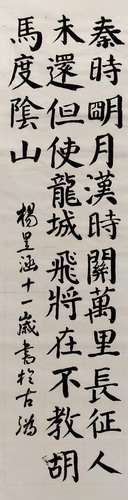 秦時明月漢時關萬里長征人
未還但使龍城飛將在不教胡
馬度陰山
楊墨涵十一歲書於古鴻